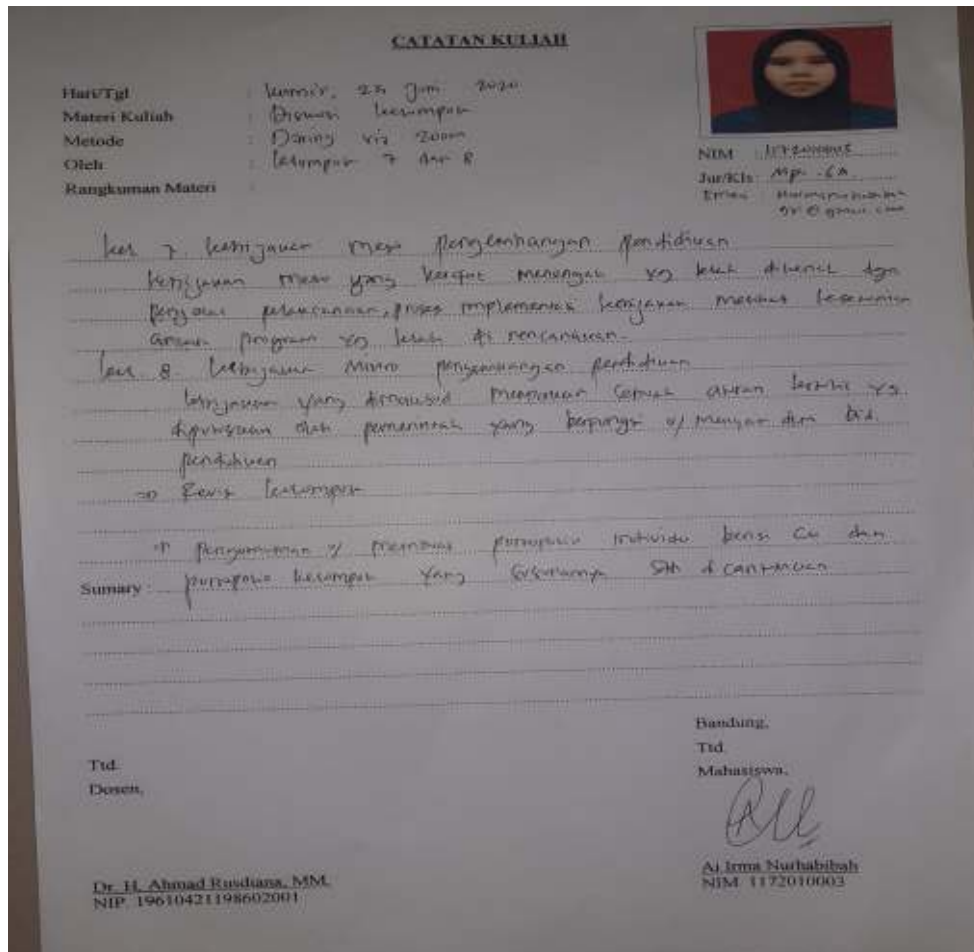 CATATAN KULIAH
Hari/Tgl : kamis, 25 Juni 2020
Materi Kuliah : Diskusi kelompok
Metode : Daring via zoom
Oleh : kelompok 7 dan 8
Rangkuman Materi :
NIM : 1172010003
Jur/Kls : MPI - 6A
Email :
kel 7. kebijakan meso pengembangan pendidikan
kebijakan meso yang bersifat menengah yg telah dibentuk dgn
perencanaan, proses implementasi kebijakan melihat kesesuaian
program yg telah di rencanakan.
kel 8. kebijakan mikro pengembangan pendidikan
kebijakan yang dimaksud merupakan sebuah aturan yg
diputuskan oleh pemerintah yang berfungsi u/ dlm bid.
pendidikan
=> Revisi kelompok
pengumuman u/ membuat portopolio individu berisi CV dan
Sumary : portopolio kelompok yang susunannya sdh dicantumkan
Bandung,
Ttd.
Mahasiswa,
Ttd.
Dosen,
Ai Irma Nurhabibah
NIM 1172010003
Dr. H. Ahmad Rusdiana, MM.
NIP. 196104211986021001